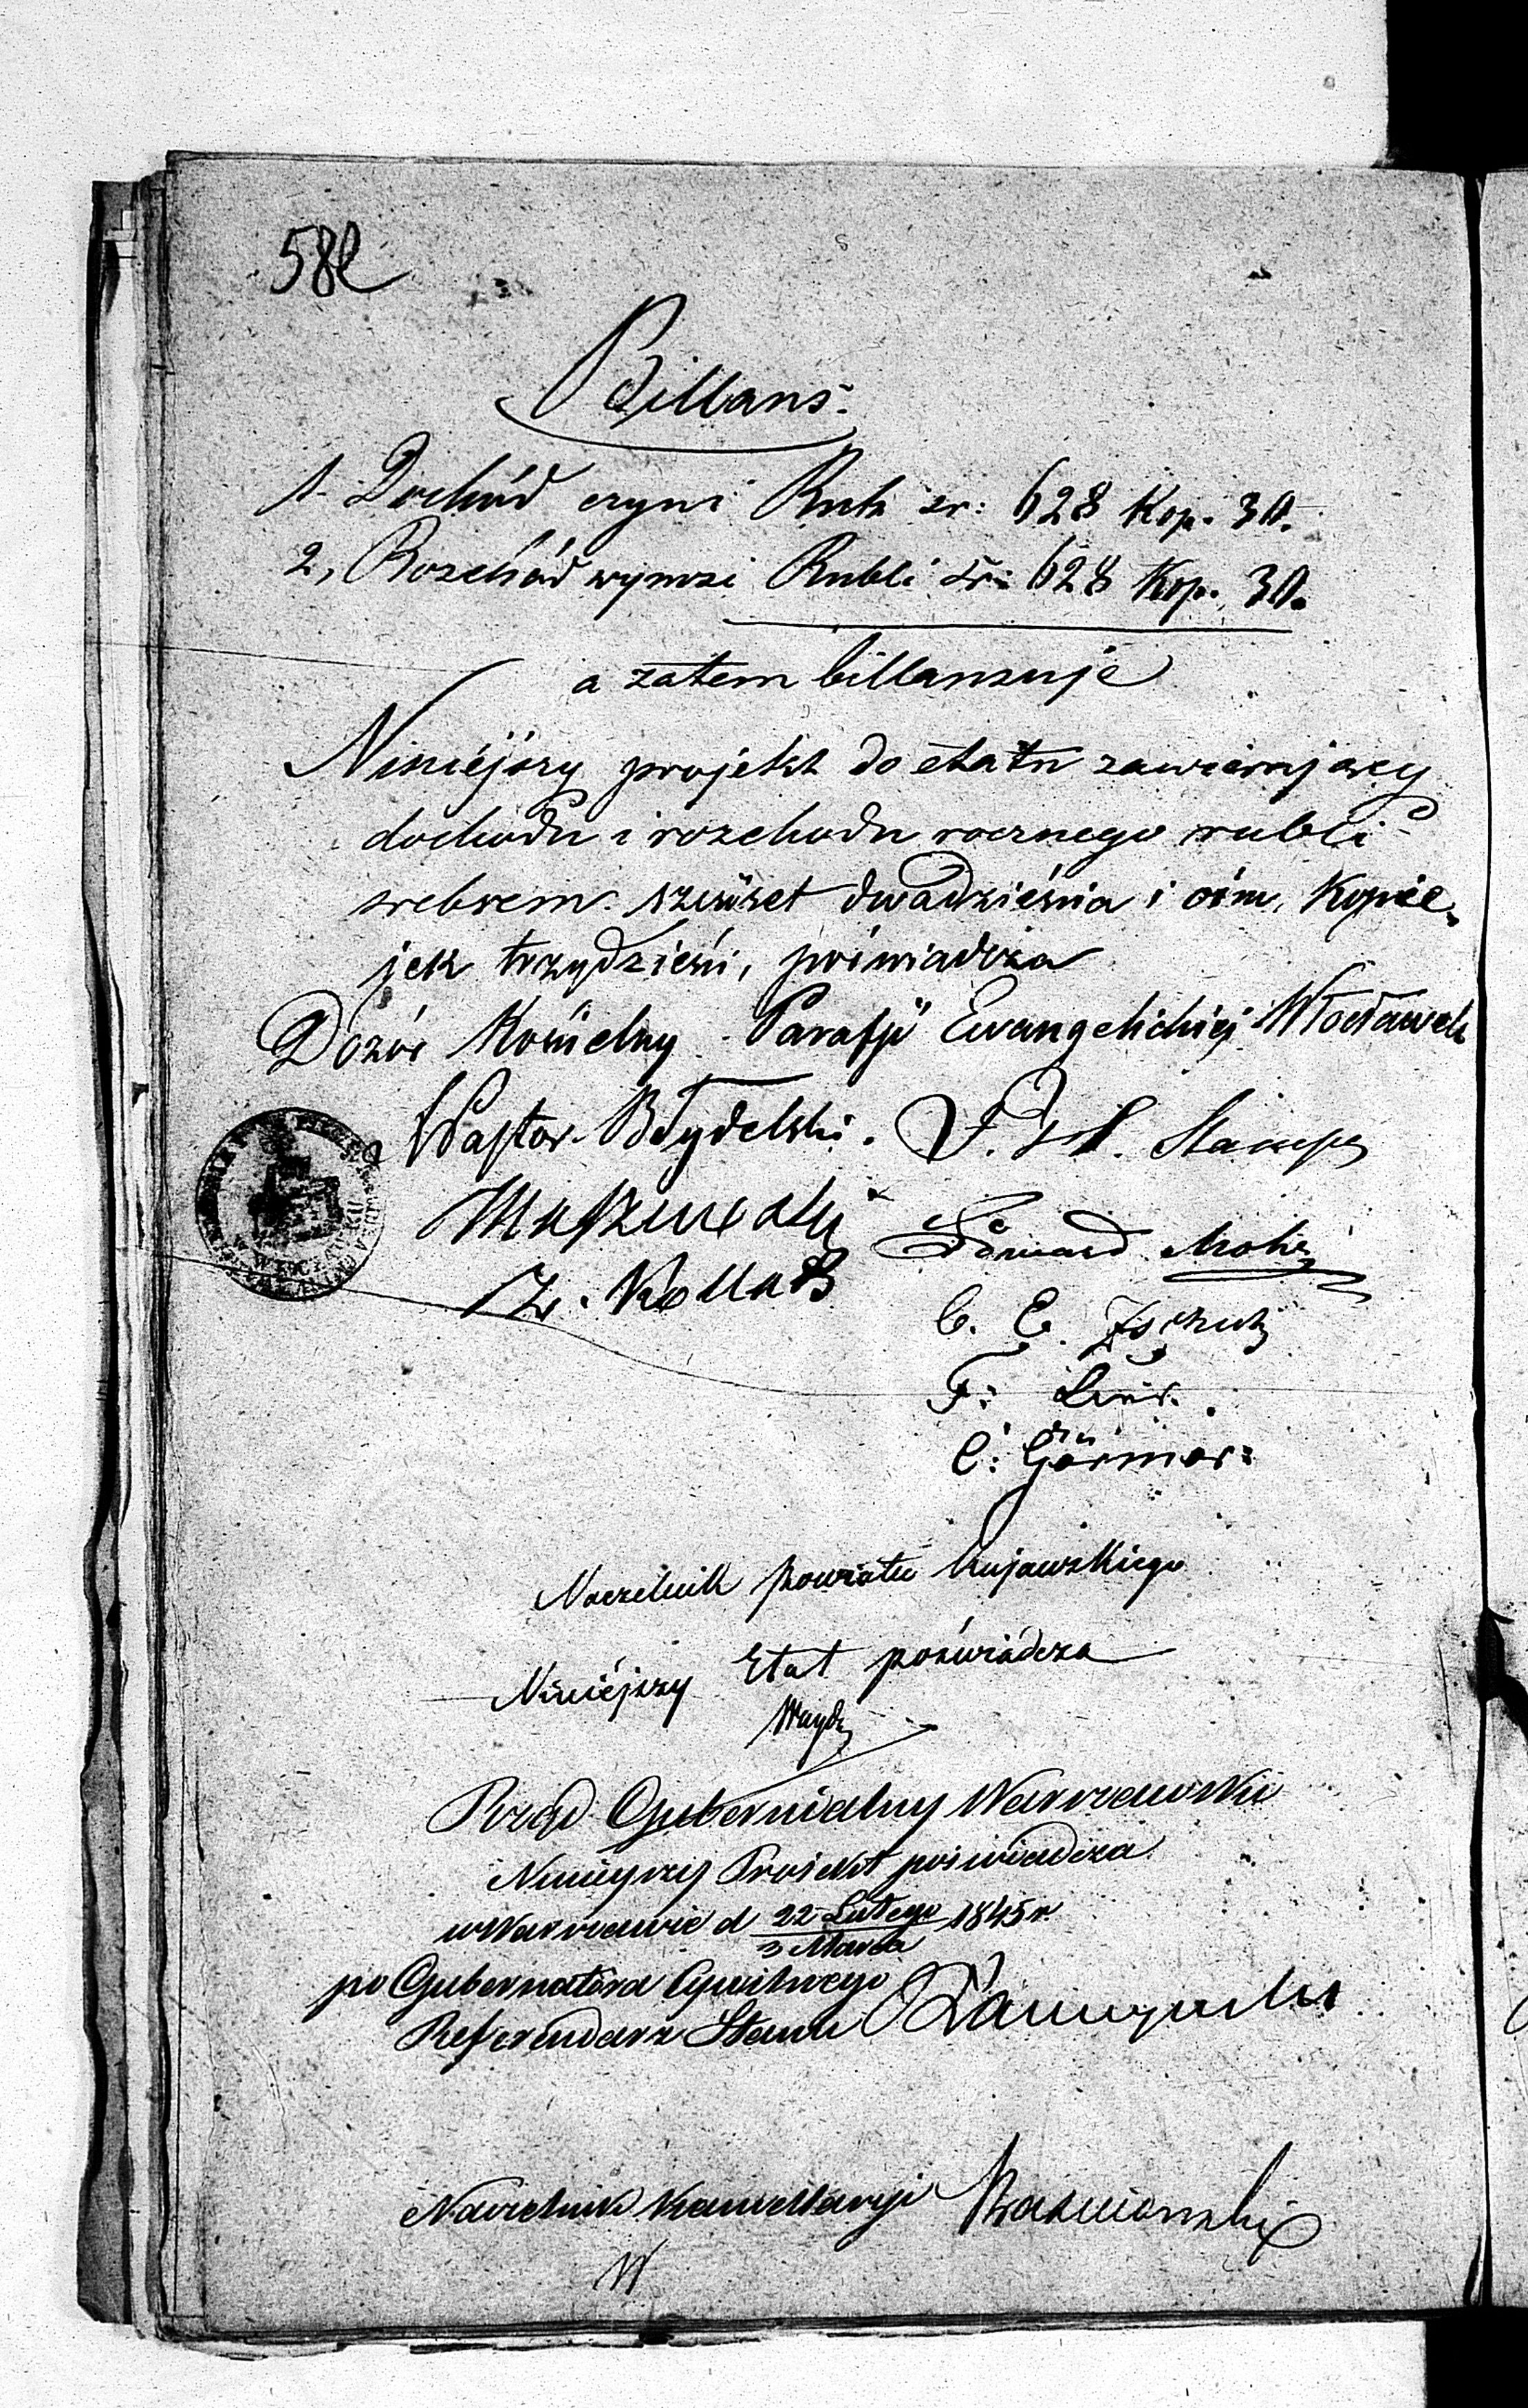 582
Billans.
1. Dochód czyni Rub. sr: 628 Kop. 30.
2, Rozchód wynosi Rubli sr: 628 Kop. 30.
a zatem billansuje
Niniéjszy projekt do etatu zawierający
dochodu i rozchodu rocznego rubli
srebrem sześćset dwadzieścia i ośm, Kopie-
jek trzydzieści, poświadcza
Dozór Kościelny Parafji Ewangelickiej Włocławek
Pastor Błydelski.
C. E.
F:
C: Görner:
Naczelnik powiatu Kujawskiego
Niniéjszy Etat poświadcza
Rząd Gubernialny Warszawski
Nimiejszy Projekt poświadcza
w Warszawie d 22 Lutego 1845 r.
3 Marca
po Gubernatora Cywilnego
Referendarz Stanu
Naczelnik Kancellaryi